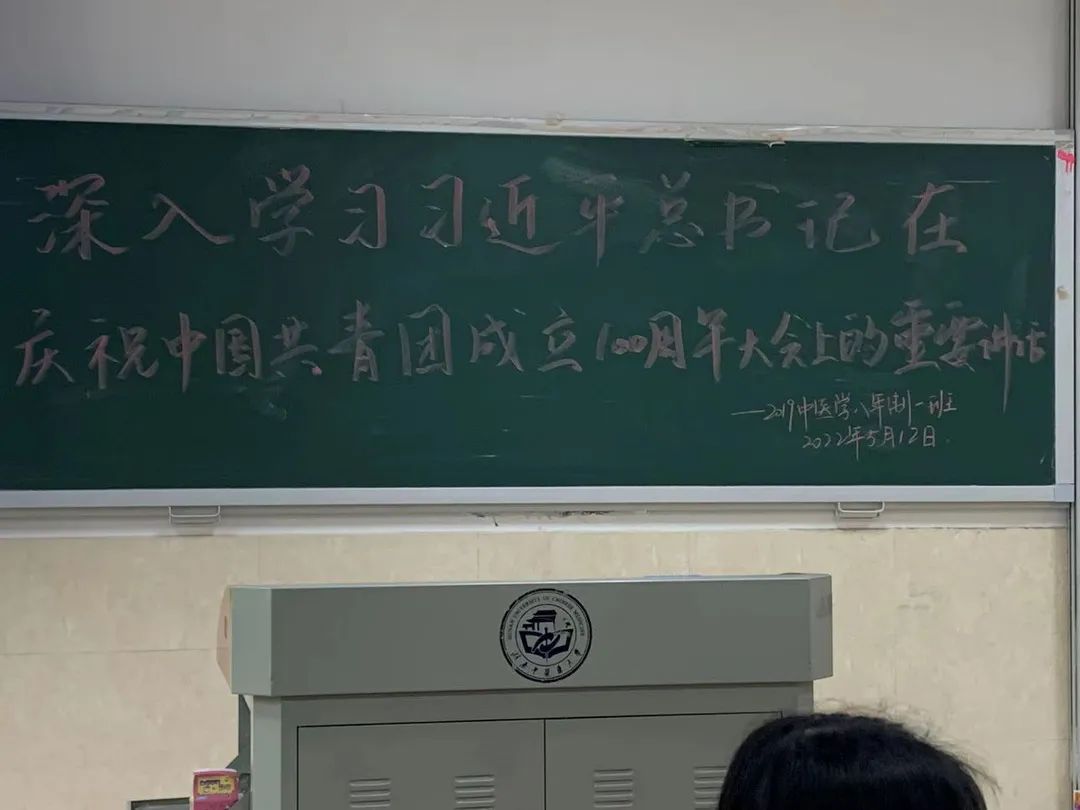 深入学习习近平总书记在
庆祝中国共青团成立100周年大会上的重要讲话
—2019中医学八年制一班
2022年5月12日.
HUNAN UNIVERSITY OF CHINESE MEDICINE
湖南中医药大学